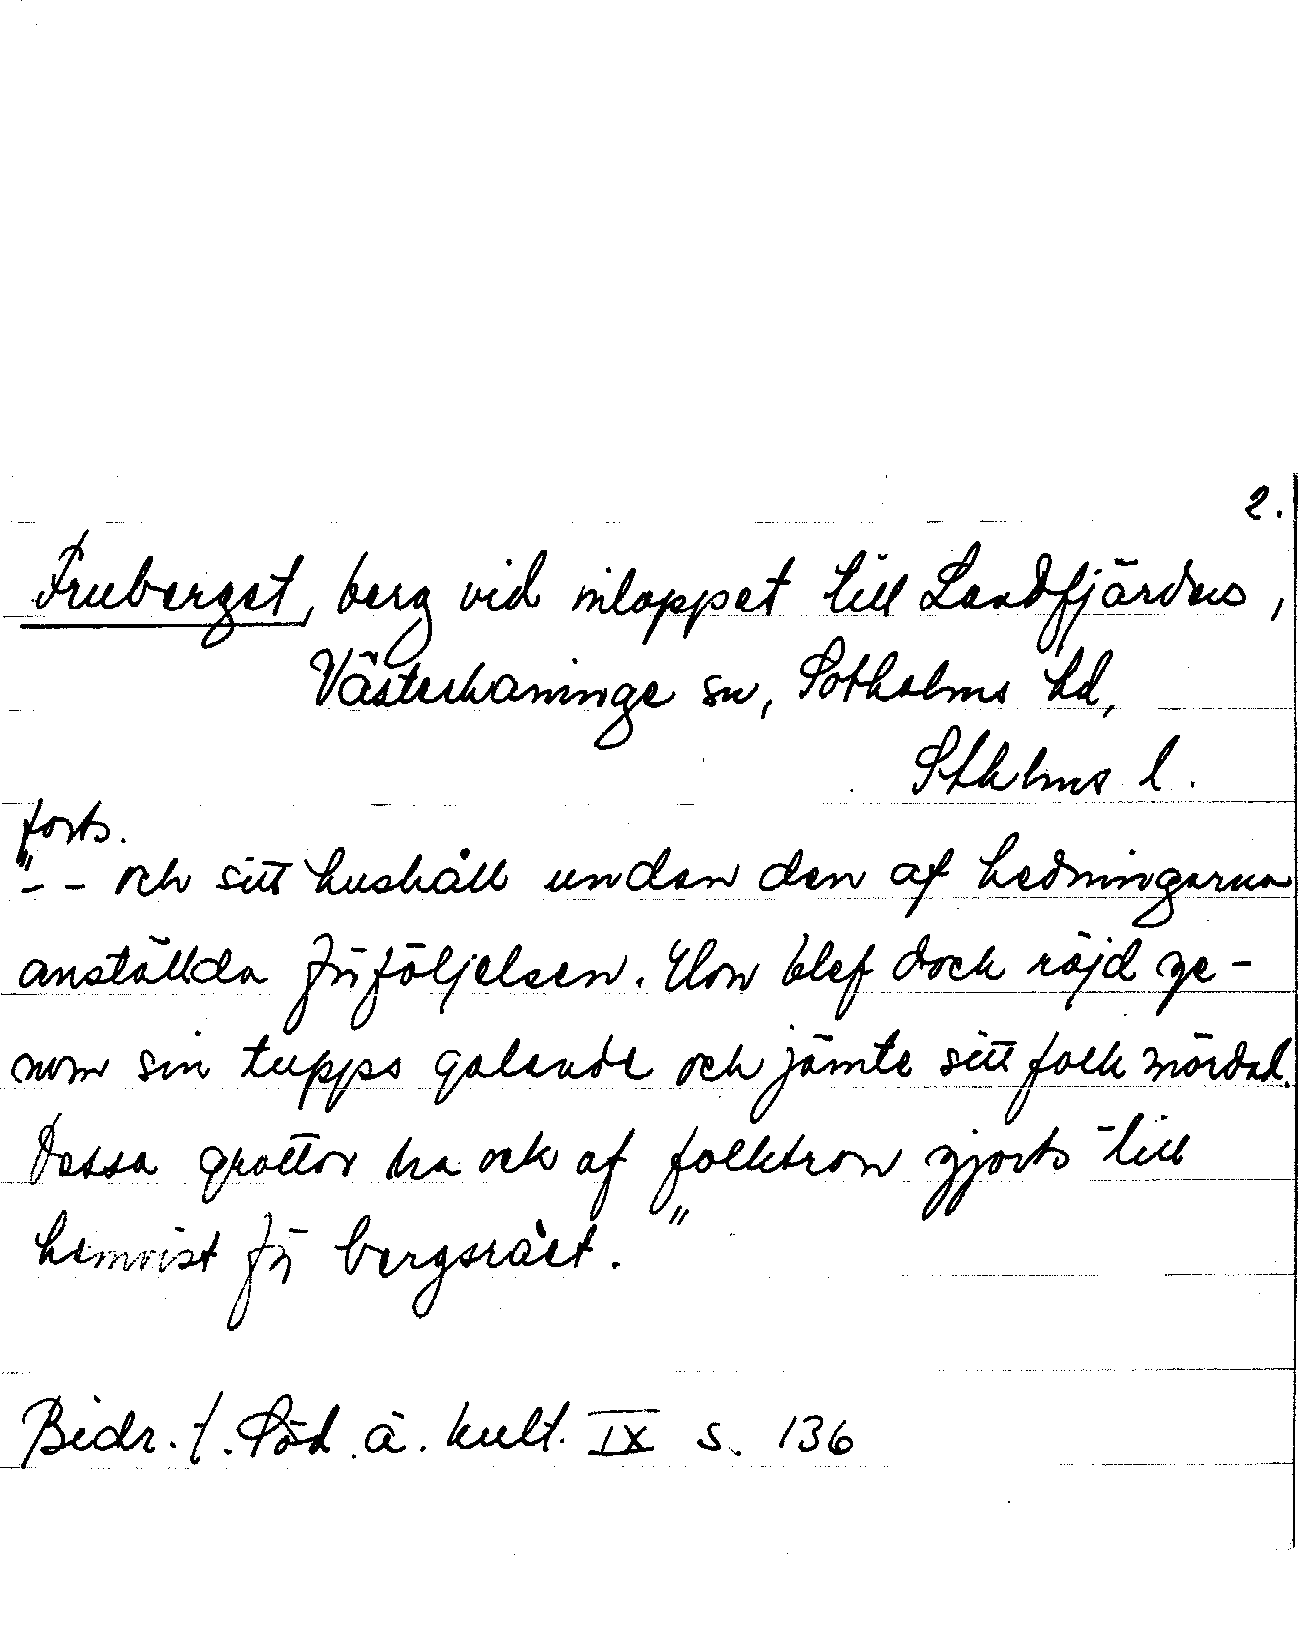 2.
Fruberget, berg vid inloppet till Landfjärden,
Västerhaninge sn, Sotholms hd,
Sthlms l.
forts.
"-- och sitt hushåll undan den af hedningarna
anställda förföljelsen. Hon blef dock röjd ge-
nom sin tupps galande och jämte sitt folk mördad.
Dessa grottor ha ock af folktron gjorts till
hemvist för bergsrået."
Bidr. t. Söd. ä. kult. IX s. 136